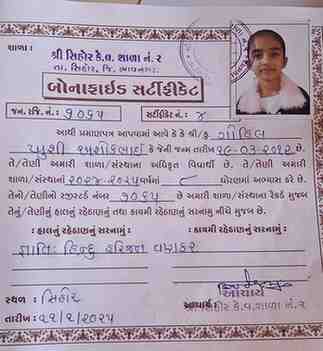 શાળા :
શ્રી સિહોર કે.વ. શાળા નં. ૨
તા. સિહોર, જિ. ભાવનગર.
બોનાફાઈડ સર્ટીફીકેટ
જન. રજિ. નં. : ૧૦૬૫ સર્ટીફીકેટ નં. : ૪
આથી પ્રમાણપત્ર આપવામાં આવે કે કે શ્રી/કુ. ગોહિલ
અશોકભાઈ કે જેની જન્મ તારીખ ૨૯-૦૩-૨૦૧૨ છે.
તે/તેણી અમારી શાળા/સંસ્થાના અધિકૃત વિદ્યાર્થી છે. તે/તેણી અમારી
શાળા/સંસ્થામાં ૨૦૨૪-૨૦૨૫ વર્ષમાં ૮ ધોરણમાં અભ્યાસ કરે છે.
તેનો/તેણીનો રજીસ્ટર્ડ નંબર ૧૦૬૫ છે અમારી શાળા/સંસ્થાના રેકર્ડ મુજબ
તેનું/તેણીનું હાલનું રહેઠાણનું તથા કાયમી રહેઠાણનું સરનામુ નીચે મુજબ છે.
: હાલનું રહેઠાણનું સરનામું : : કાયમી રહેઠાણનું સરનામું :
જ્ઞાતિ હિન્દુ વણકર
આચાર્ય
સ્થળ : સિહોર આચાર્ય શ્રી સિહોર કે.વ.શાળા નં. ૨
તારીખ :